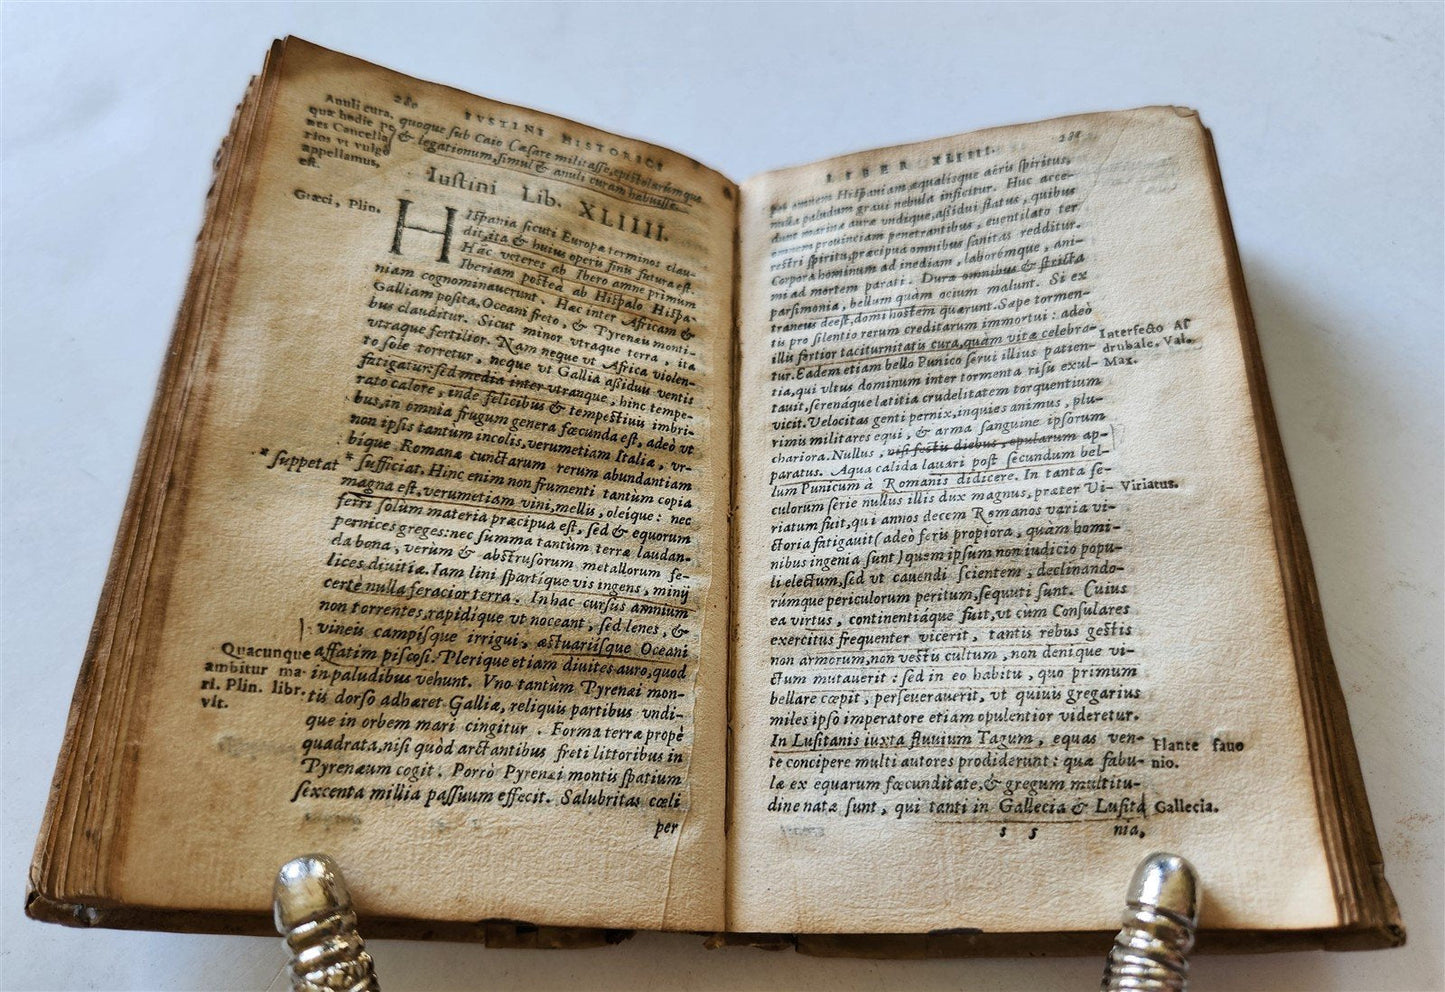 280
IVSTINI HISTORICI
Anuli cura,
quæ hodie pe
nes Cancella
rios vt vulgo
appellamus,
est.
quoque sub Caio Cæsare militasse, epistolarúmque
& legationum, simul & anuli curam habuisse.
Iustini Lib. XLIIII.
Græci, Plin.
HIspania sicuti Europæ terminos clau-
dit, ita & huius operis finis futura est.
Hãc veteres ab Ibero amne primum
Iberiam postea ab Hispalo Hispa-
niam cognominauerunt. Hæc inter Africam &
Galliam posita, Oceani freto, & Pyrenæis monti-
bus clauditur. Sicut minor vtraque terra, ita
vtraque fertilior. Nam neque vt Africa violen-
to sole torretur, neque vt Gallia aßiduis ventis
fatigatur: sed media inter vtranque, hinc tempe-
rato calore, inde felicibus & tempestiuis imbri-
bus, in omnia frugum genera fœcunda est, adeò vt
non ipsis tantùm incolis, verumetiam Italiæ, vr-
bique Romanæ cunctarum rerum abundantiam
* suppetat
* sufficiat. Hinc enim non frumenti tantùm copia
magna est, verumetiam vini, mellis, oleique: nec
ferri solùm materia præcipua est, sed & equorum
pernices greges: nec summa tantùm terræ laudan-
da bona, verùm & abstrusorum metallorum fe-
lices diuitiæ. Iam lini spartique vis ingens, minij
certè nulla feracior terra. In hac cursus amnium
non torrentes, rapidique vt noceant, sed lenes, &
vineis campisque irrigui, æstuariisque Oceani
Quacunque
ambitur ma-
ri. Plin. libr.
vlt.
affatim piscosi. Plerique etiam diuites auro, quod
in paludibus vehunt. Vno tantùm Pyrenæi mon-
tis dorso adhæret Galliæ, reliquis partibus vndi-
que in orbem mari cingitur. Forma terræ propè
quadrata, nisi quòd arctantibus freti littoribus in
Pyrenæum cogit. Porrò Pyrenæi montis spatium
sexcenta millia passuum effecit. Salubritas cœli
per
LIBER XLIIII.
281
per omnem Hispaniam æqualisque aëris spiritus,
nulla paludum graui nebula inficitur. Huc acce-
dunt marinæ auræ vndique, aßidui flatus, quibus
omnem prouinciam penetrantibus, euentilato ter
restri spiritu, præcipua omnibus sanitas redditur.
Corpora hominum ad inediam, laborémque, ani-
mi ad mortem parati. Dura omnibus & stricta
parsimonia, bellum quàm ocium malunt. Si ex
traneus deest, domi hostem quærunt. Sæpe tormen-
tis pro silentio rerum creditarum immortui: adeò
illis fortior taciturnitatis cura, quàm vitæ celebra-
tur. Eadem etiam bello Punico serui illius patien-
Interfecto As
drubale. Val.
Max.
tia, qui vltus dominum inter tormenta risu exul-
tauit, serenáque lætitia crudelitatem torquentium
vicit. Velocitas genti pernix, inquies animus, plu-
rimis militares equi, & arma sanguine ipsorum
chariora. Nullus, nisi festis diebus, epularum ap-
paratus. Aqua calida lauari post secundum bel-
lum Punicum à Romanis didicere. In tanta se-
culorum serie nullus illis dux magnus, præter Vi-
Viriatus.
riatum fuit, qui annos decem Romanos varia vi-
ctoria fatigauit (adeò feris propiora, quàm homi-
nibus ingenia sunt) quem ipsum non iudicio popu-
li electum, sed vt cauendi scientem, declinando-
rúmque periculorum peritum, sequuti sunt. Cuius
ea virtus, continentiáque fuit, vt cùm Consulares
exercitus frequenter vicerit, tantis rebus gestis
non armorum, non vestis cultum, non denique vi-
ctum mutauerit: sed in eo habitu, quo primum
bellare cœpit, perseuerauerit, vt quiuis gregarius
miles ipso imperatore etiam opulentior videretur.
In Lusitanis iuxta fluuium Tagum, equas ven-
Flante fauo
nio.
te concipere multi autores prodiderunt: quæ fabu-
læ ex equarum fœcunditate, & gregum multitu-
dine natæ sunt, qui tanti in Gallecia & Lusita
Gallecia.
s s
nia,